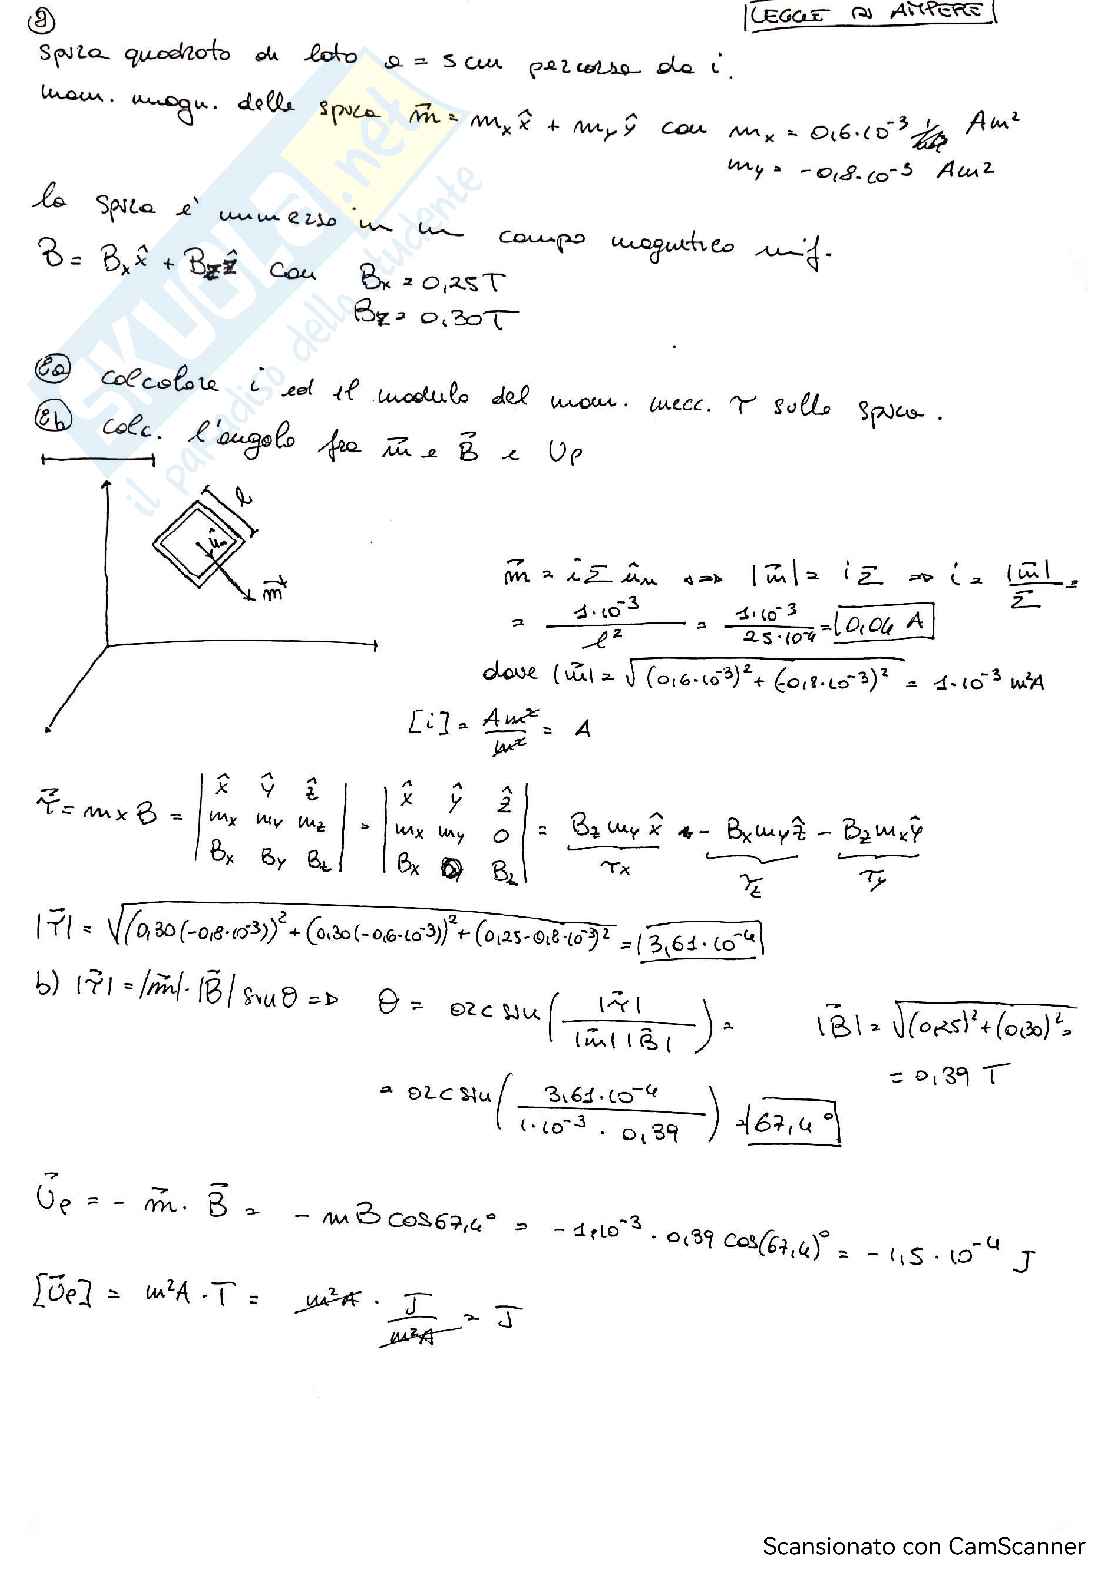 ②
LEGGE DI AMPERE
Spira quadrata di lato a = 5 cm percorsa da i.
mom. magn. della spira m⃗ = mₓx̂ + m_yŷ con mₓ = 0,6·10⁻³ Am²
m_y = -0,8·10⁻³ Am²
la spira è immersa in un campo magnetico unif.
B = Bₓx̂ + B_zẑ con Bₓ = 0,25T
B_z = 0,30T
calcolare i ed il modulo del mom. mecc. τ sulla spira.
calc. l'angolo fra m⃗ e B⃗ e Up
l
û_n
m⃗
m⃗ = iΣ û_n ⟺ |m⃗| = iΣ ⇒ i = |m⃗|/Σ =
= 1·10⁻³/l² = 1·10⁻³/25·10⁻⁴ = 0,04 A
dove |m⃗| = √((0,6·10⁻³)² + (-0,8·10⁻³)²) = 1·10⁻³ m²A
[i] = Am²/m² = A
τ⃗ = m×B = |x̂ ŷ ẑ; mₓ m_y m_z; Bₓ B_y B_z| = |x̂ ŷ ẑ; mₓ m_y 0; Bₓ 0 B_z| = B_z m_y x̂ - Bₓ m_y ẑ - B_z mₓ ŷ
τₓ τ_z τ_y
|τ⃗| = √((0,30(-0,8·10⁻³))² + (0,30(-0,6·10⁻³))² + (0,25·0,8·10⁻³)²) = 3,61·10⁻⁴
b) |τ⃗| = |m⃗|·|B⃗| sinθ ⇒ θ = arcsin(|τ⃗|/|m⃗||B⃗|) = |B⃗| = √((0,25)² + (0,30)²) =
= 0,39 T
= arcsin(3,61·10⁻⁴/1·10⁻³·0,39) = 67,4°
U⃗p = - m⃗·B⃗ = - mBcos67,4° = -1·10⁻³·0,39 cos(67,4)° = -1,5·10⁻⁴ J
[U⃗p] = m²A·T = m²A · J/m²A = J
SKUOLA.net
il paradiso dello studente
Scansionato con CamScanner